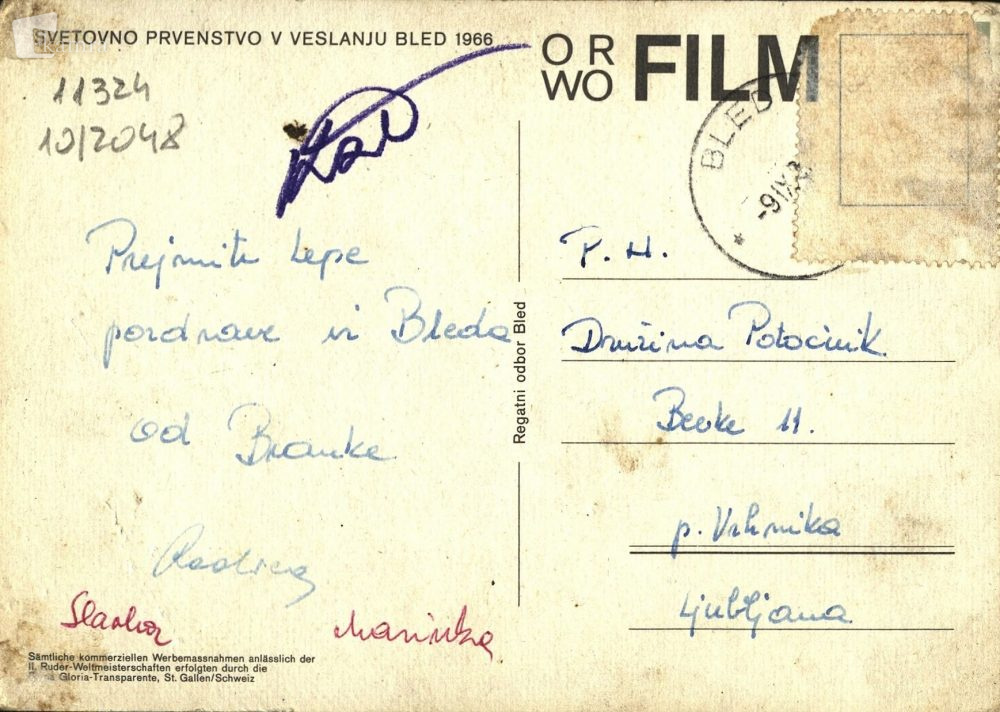 SVETOVNO PRVENSTVO V VESLANJU BLED 1966
OR
WO
FILM
11324
10/2048
BLED
-9.IX.
Prejmite lepe
pozdrave iz Bleda
od Branke
Slavka
Marinka
Regatni odbor Bled
P. H.
Družina Potočnik
Bevke 11.
p. Vrhnika
Ljubljana
Sämtliche kommerziellen Werbemassnahmen anlässlich der
II. Ruder-Weltmeisterschaften erfolgten durch die
Gloria-Transparente, St. Gallen/Schweiz